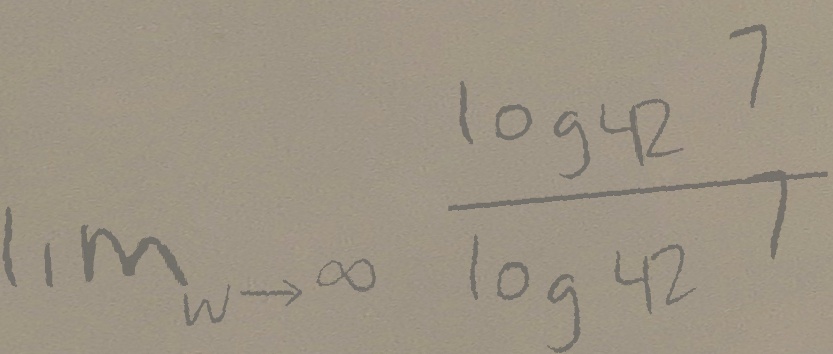 lim_{w \to \infty} \frac{\log 42^7}{\log 42^7}